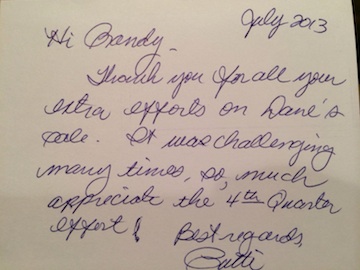 July 2013
Hi Randy -
Thank you for all your
extra efforts on Dave's
sale. It was challenging
many times, so, much
appreciate the 4th Quarter
effort!
Best regards,
Patti